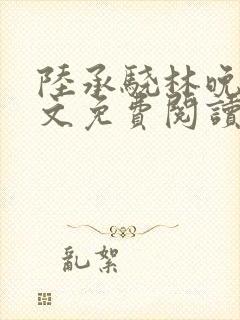 陸承驍林晚
文免費閱讀
亂絮